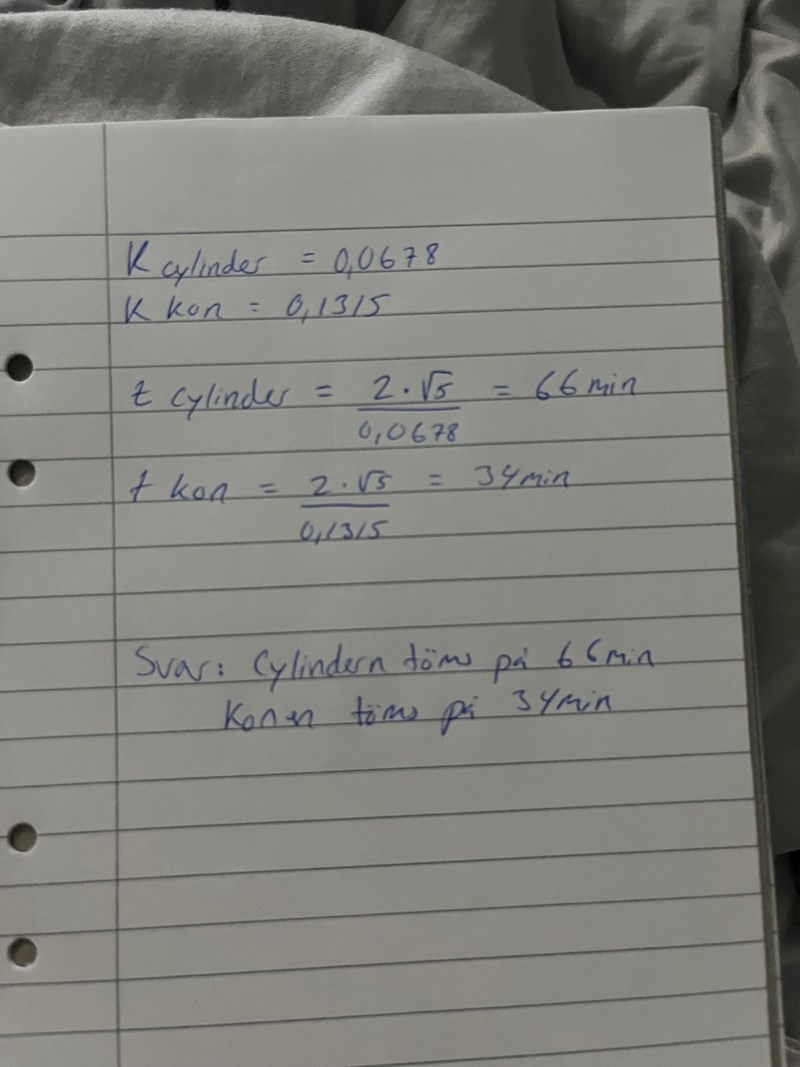 K cylinder = 0,0678
K kon = 0,1315
t cylinder = 2·√5 / 0,0678 = 66 min
t kon = 2·√5 / 0,1315 = 34 min
Svar: Cylindern töms på 66 min
Konen töms på 34 min